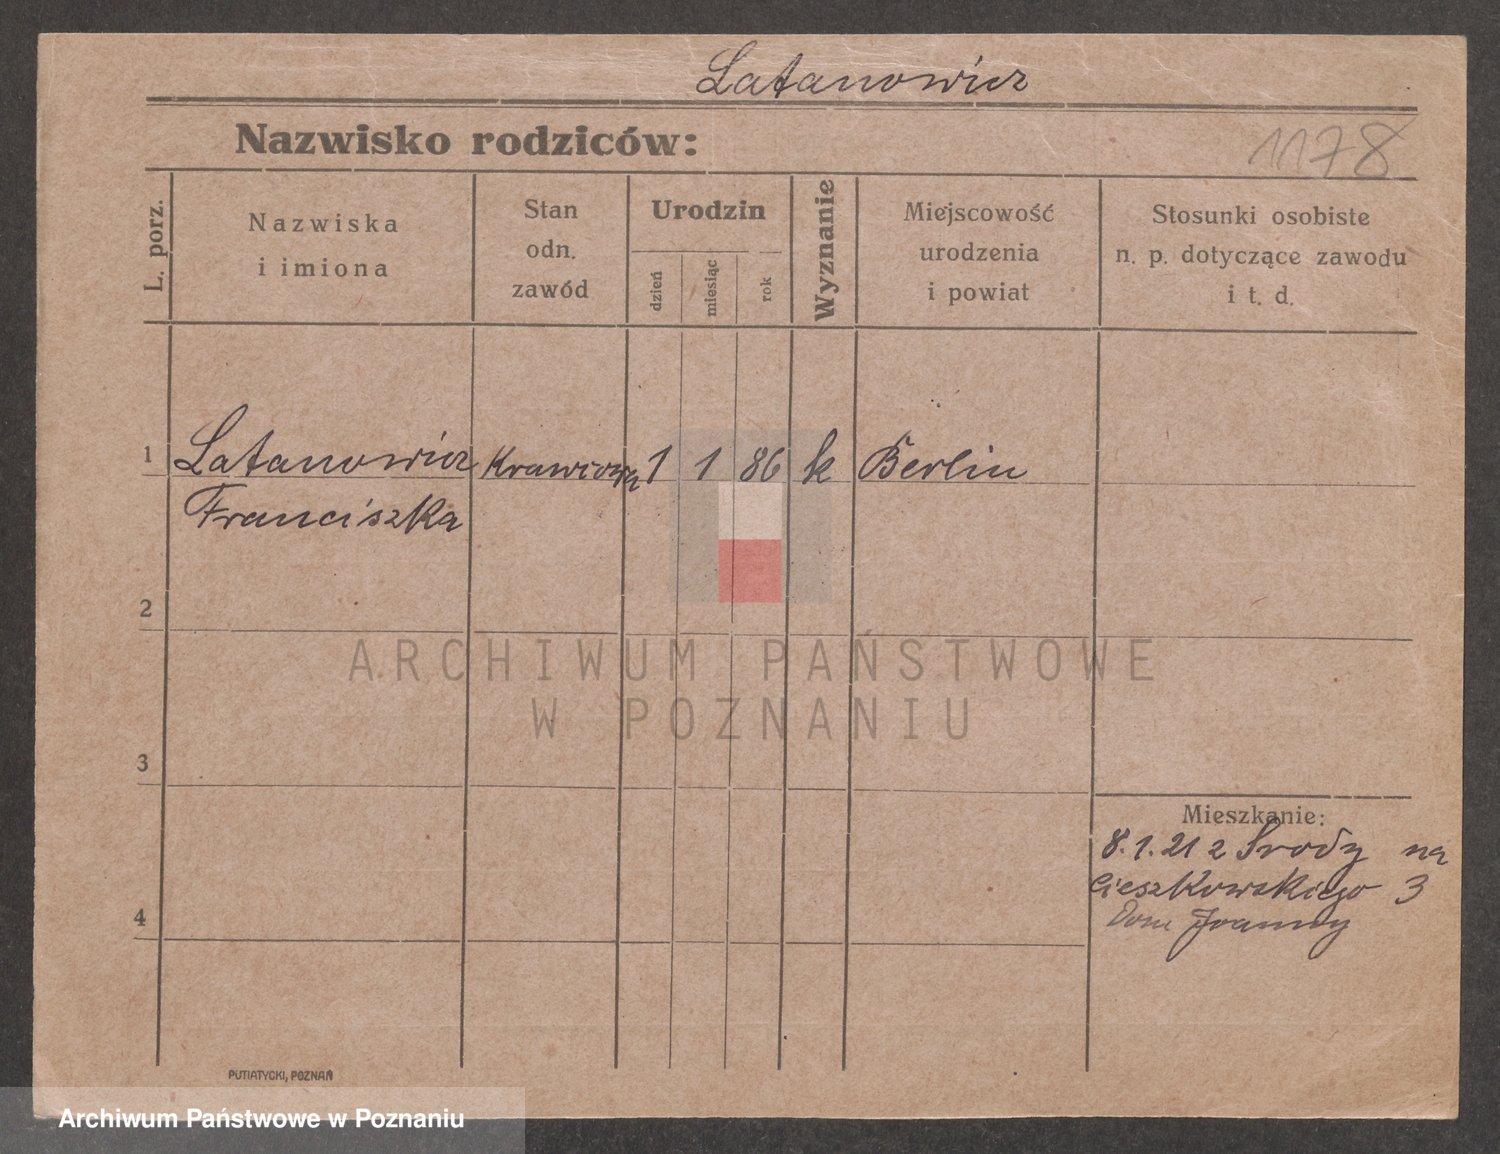 Latanowicz
Nazwisko rodziców:
1178
L. porz.
Nazwiska
i imiona
Stan
odn.
zawód
Urodzin
dzień
miesiąc
rok
Wyznanie
Miejscowość
urodzenia
i powiat
Stosunki osobiste
n. p. dotyczące zawodu
i t. d.
1 Latanowicz Krawcowa 1 1 86 k Berlin
Franciszka
2
ARCHIWUM PAŃSTWOWE
W POZNANIU
3
Mieszkanie:
8.1.21 z Środy na
Cieszkowskiego 3
4
Dom Joanny
PUTIATYCKI, POZNAŃ
Archiwum Państwowe w Poznaniu